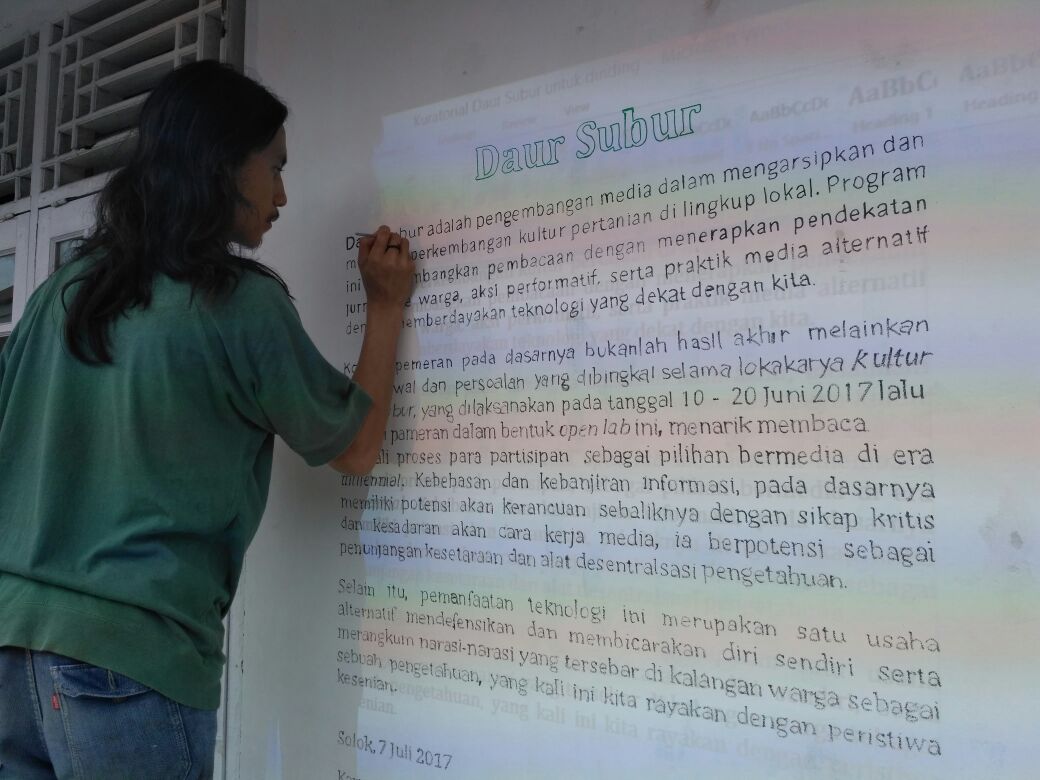 Kuratorial Daur Subur untuk dinding
View
AaBbCcDc AaBbC
Heading 1 Heading
Daur Subur
adalah pengembangan media dalam mengarsipkan dan
perkembangan kultur pertanian di lingkup lokal. Program
ini pembacaan dengan menerapkan pendekatan
warga, aksi performatif, serta praktik media alternatif
teknologi yang dekat dengan kita.
pameran pada dasarnya bukanlah hasil akhir melainkan
dan persoalan yang dibingkai selama lokakarya Kultur
yang dilaksanakan pada tanggal 10 - 20 Juni 2017 lalu
pameran dalam bentuk open lab ini, menarik membaca
proses para partisipan sebagai pilihan bermedia di era
millennial. Kebebasan dan kebanjiran informasi, pada dasarnya
memiliki potensi akan kerancuan sebaliknya dengan sikap kritis
dan kesadaran akan cara kerja media, ia berpotensi sebagai
penunjangan kesetaraan dan alat desentralsasi pengetahuan.
Selain itu, pemanfaatan teknologi ini merupakan satu usaha
alternatif mendefensikan dan membicarakan diri sendiri serta
merangkum narasi-narasi yang tersebar di kalangan warga sebagai
sebuah pengetahuan, yang kali ini kita rayakan dengan peristiwa
kesenian.
Solok, 7 Juli 2017